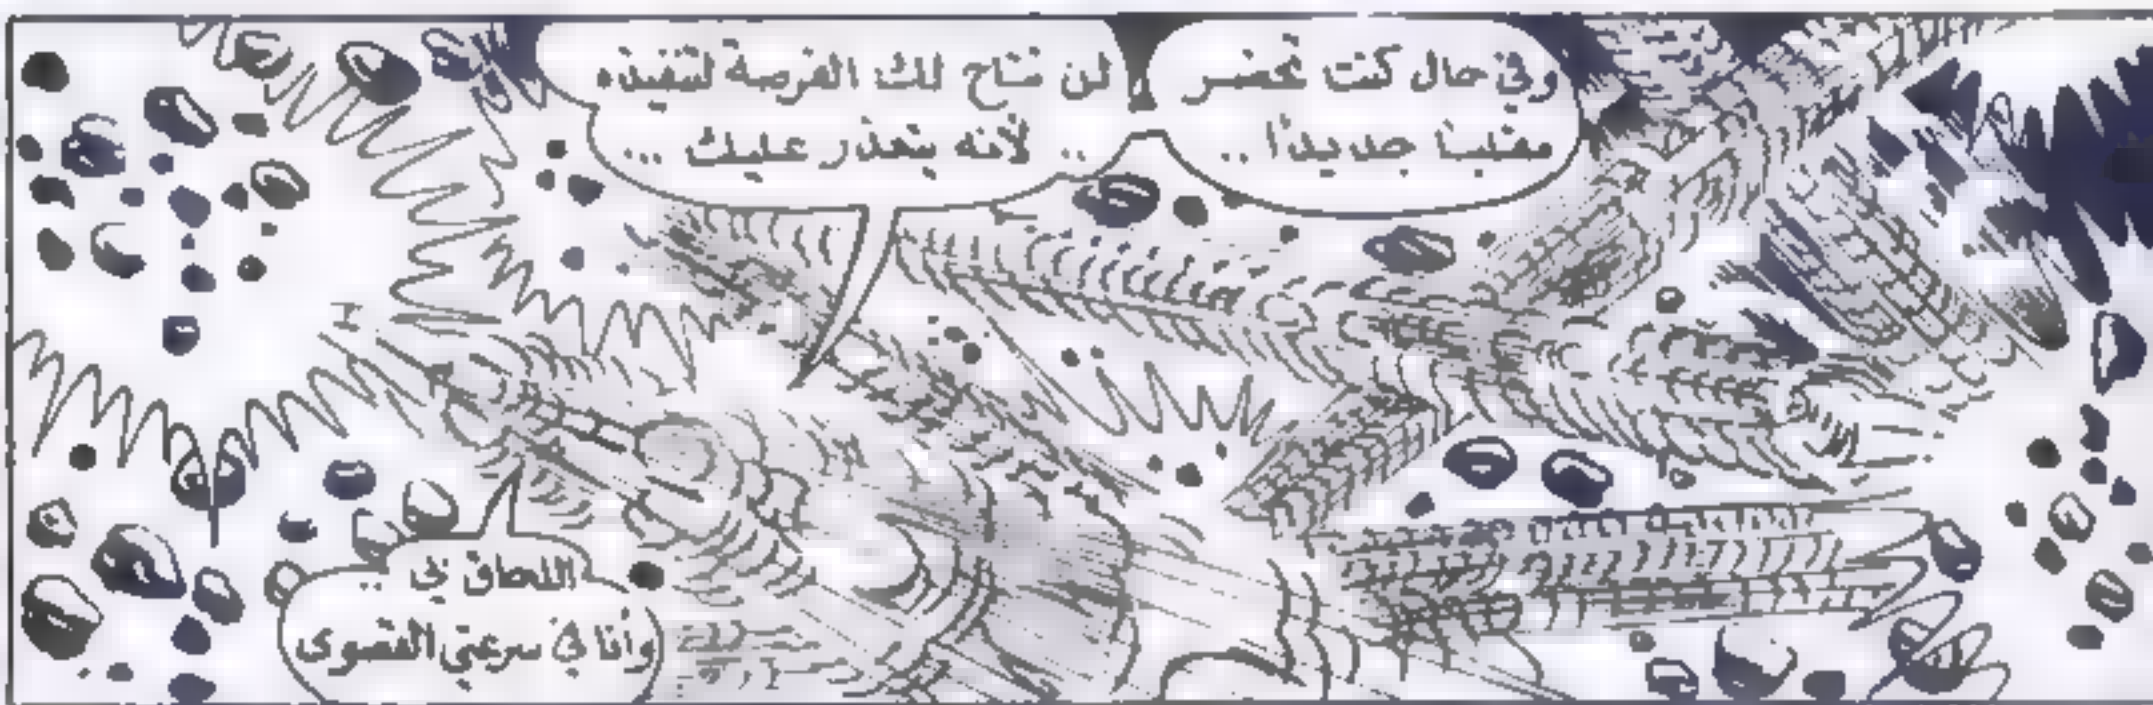 وفي حال كنت تحضر
مقلبًا جديدًا ..
لن تتاح لك الفرصة لتنفيذه
.. لأنه يتعذر عليك ...
اللحاق بي ..
وأنا في سرعتي القصوى